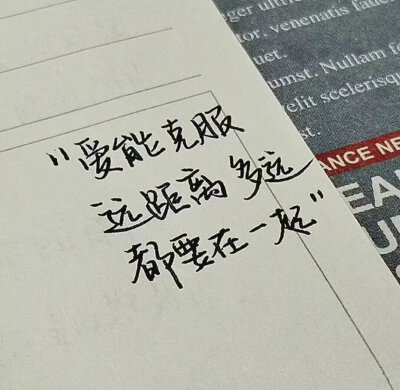 "爱能克服
远距离多远
都要在一起"
ger ultri
tor, venenatis fauci
uet.
umst. Nullam f
velit scelerisqu
st.
ANCE NE
EA